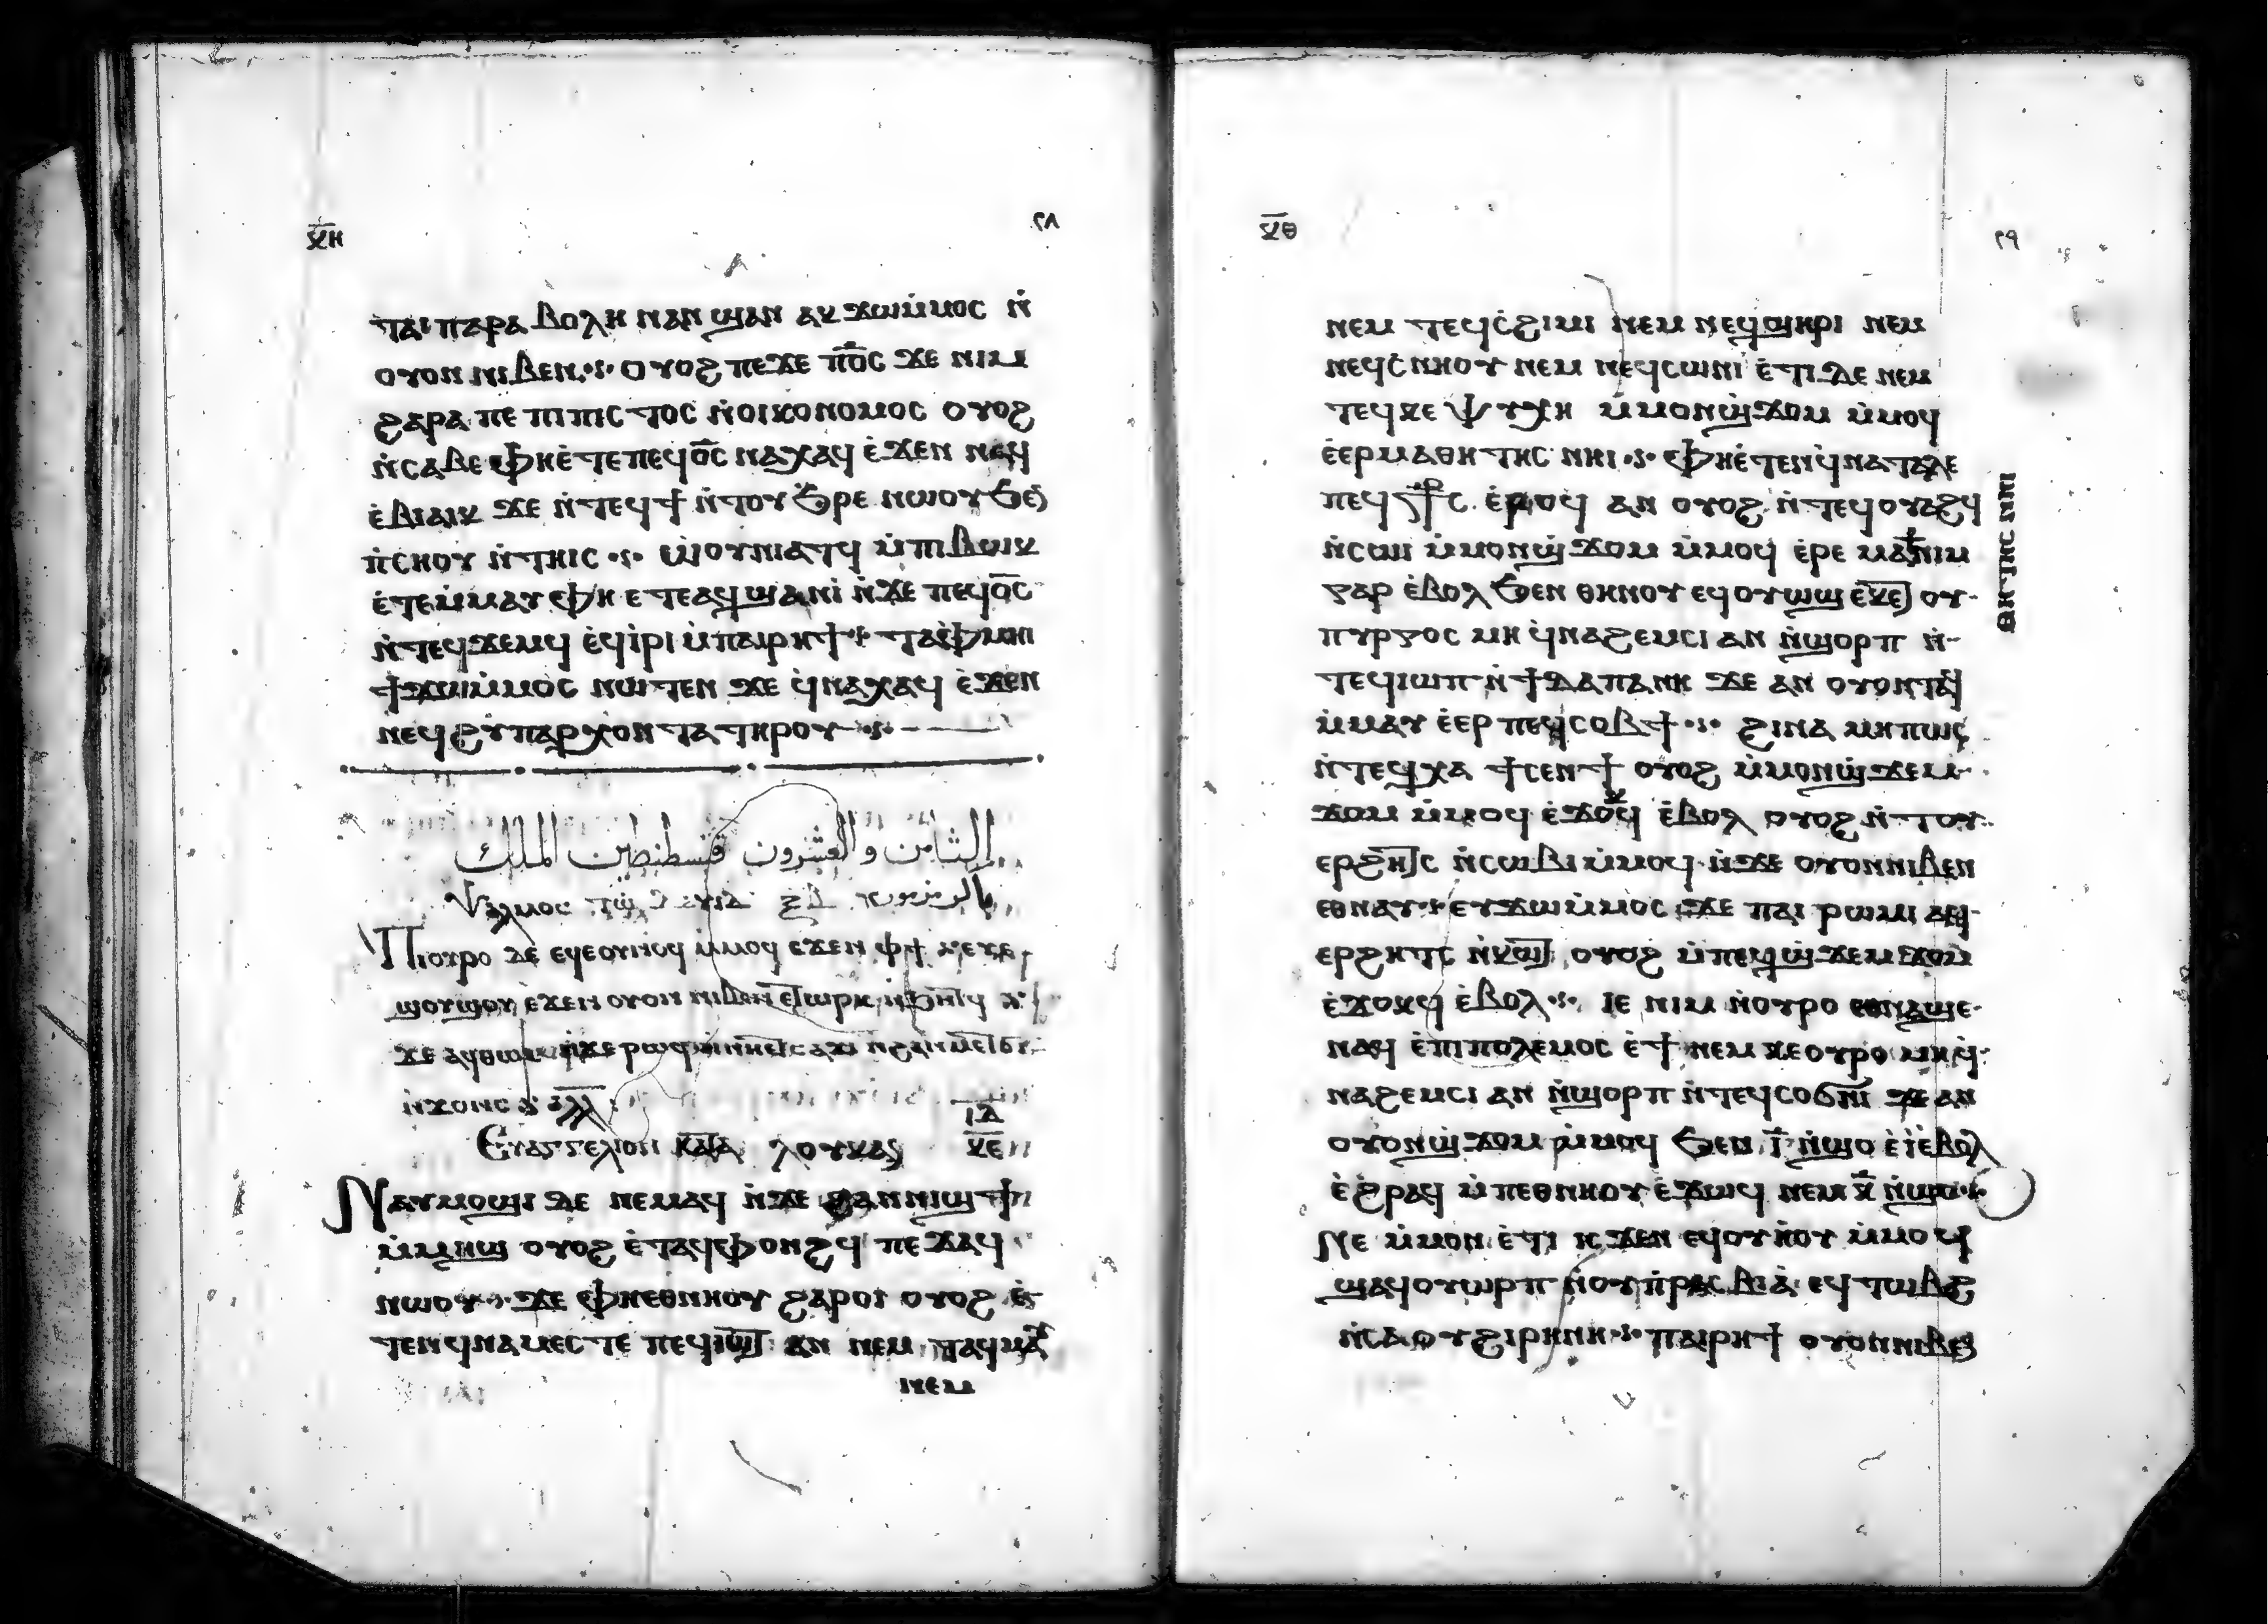 ⲕⲏ ٢٨
ⲧⲁⲓⲡⲁⲣⲁⲃⲟⲗⲏ ⲛⲁⲛ ϣⲁⲛ ⲁⲕϫⲱⲙ̇ⲙⲟⲥ ⲛ̇
ⲟⲩⲟⲛ ⲛⲓⲃⲉⲛ ⲟⲩⲟϩ ⲡⲉϫⲉ ⲡⲟ̅ⲥ ϫⲉ ⲛⲓⲙ
ϩⲁⲣⲁ ⲡⲉ ⲡⲓⲡⲓⲥⲧⲟⲥ ⲛ̇ⲟⲓⲕⲟⲛⲟⲙⲟⲥ ⲟⲩⲟϩ
ⲛ̇ⲥⲁⲃⲉ ⲫⲏⲉ̇ⲧⲉⲡⲉϥⲟ̅ⲥ ⲛⲁⲭⲁϥ ⲉ̇ϫⲉⲛ ⲛⲉϥ
ⲉ̇ⲃⲓⲁⲓⲕ ϫⲉ ⲛ̇ⲧⲉϥϯ ⲛ̇ⲧⲟⲩϧⲣⲉ ⲛⲱⲟⲩ ϧⲉ̅
ⲡ̇ⲥⲏⲟⲩ ⲛ̇ⲧⲏⲓⲥ ⲱ̇ⲟⲩⲛⲓⲁⲧϥ ⲙ̇ⲡⲓⲃⲱⲕ
ⲉ̇ⲧⲉⲙ̇ⲙⲁⲩ ⲫⲏ ⲉⲧⲉⲁϥϣⲁⲛⲓ̇ ⲛ̇ϫⲉ ⲡⲉϥⲟ̅ⲥ
ⲛ̇ⲧⲉϥϫⲉⲙϥ ⲉϥⲓ̇ⲣⲓ ⲙ̇ⲡⲁⲓⲣⲏϯ ⲧⲁⲫⲙⲏⲓ
ϯϫⲱⲙ̇ⲙⲟⲥ ⲛⲱⲧⲉⲛ ϫⲉ ϥ̇ⲛⲁⲭⲁϥ ⲉ̇ϫⲉⲛ
ⲛⲉϥϩⲩⲡⲁⲣⲭⲟⲛⲧⲁ ⲧⲏⲣⲟⲩ
الثامن والعشرون قسطنطين الملك
ⲡⲓⲟⲩⲣⲟ ⲇⲉ ⲉϥⲉⲟⲩⲛⲟϥ ⲙ̇ⲙⲟϥ ⲉϫⲉⲛ ⲫϯ
ϣⲟⲩϣⲟⲩ ⲉ̇ϫⲉⲛ ⲟⲩⲟⲛ ⲛⲓⲃⲉⲛ ⲉⲧⲱⲣⲕ ⲛ̇ϧⲏⲧϥ
ϫⲉ ⲁϥⲑⲱⲙ ⲛ̇ϫⲉ ⲣⲱϥ
ⲛ̇ϫⲟⲛⲥ ⲁⲗⲗ
ⲓⲇ
Ⲉⲩⲁⲅⲅⲉⲗⲓⲟⲛ ⲕⲁⲧⲁ ⲗⲟⲩⲕⲁⲥ ⲕⲉ
Ⲛⲁⲩⲙⲟϣⲓ ⲇⲉ ⲛⲉⲙⲁϥ ⲛ̇ϫⲉ ϩⲁⲛⲛⲓϣϯ
ⲙ̇ⲙⲏϣ ⲟⲩⲟϩ ⲉ̇ⲧⲁϥⲫⲟⲛϩϥ ⲡⲉϫⲁϥ
ⲛⲱⲟⲩ ϫⲉ ⲫⲏⲉⲑⲛⲏⲟⲩ ϩⲁⲣⲟⲓ ⲟⲩⲟϩ ⲉ̇
ⲧⲉⲛϥⲛⲁⲙⲉⲥⲧⲉ ⲡⲉϥⲓⲱⲧ ⲁⲛ ⲛⲉⲙ ⲧⲁϥⲙⲁⲩ
ⲛⲉⲙ
ⲕⲑ ٢٩
ⲛⲉⲙ ⲧⲉϥⲥ̇ϩⲓⲙⲓ ⲛⲉⲙ ⲛⲉϥϣⲏⲣⲓ ⲛⲉⲙ
ⲛⲉϥⲥ̇ⲛⲏⲟⲩ ⲛⲉⲙ ⲛⲉϥⲥⲱⲛⲓ ⲉ̇ⲧⲓ ⲇⲉ ⲛⲉⲙ
ⲧⲉϥⲕⲉⲯⲩⲭⲏ ⲙ̇ⲙⲟⲛϣ̇ϫⲟⲙ ⲙ̇ⲙⲟϥ
ⲉ̇ⲉⲣⲙⲁⲑⲏⲧⲏⲥ ⲛⲏⲓ ⲫⲏⲉ̇ⲧⲉⲛϥ̇ⲛⲁⲧⲁⲗⲉ
ⲡⲉϥⲥϯⲥ ⲉ̇ⲣⲟϥ ⲁⲛ ⲟⲩⲟϩ ⲛ̇ⲧⲉϥⲟⲩⲁϩϥ
ⲛ̇ⲥⲱⲓ ⲙ̇ⲙⲟⲛϣ̇ϫⲟⲙ ⲙ̇ⲙⲟϥ ⲉ̇ⲣⲉ ⲙⲁ ⲛⲓⲙ
ⲅⲁⲣ ⲉ̇ⲃⲟⲗ ϧⲉⲛ ⲑⲏⲛⲟⲩ ⲉϥⲟⲩⲱϣ ⲉ̇ⲕⲉⲧ ⲟⲩ
ⲡⲩⲣⲅⲟⲥ ⲙⲏ ϥ̇ⲛⲁϩⲉⲙⲥⲓ ⲁⲛ ⲛ̇ϣⲟⲣⲡ ⲛ̇
ⲧⲉϥⲓⲱⲡ ⲛ̇ϯⲇⲁⲡⲁⲛⲏ ϫⲉ ⲁⲛ ⲟⲩⲟⲛⲧⲁϥ
ⲙ̇ⲙⲁⲩ ⲉ̇ⲉⲣ ⲡⲉϥⲥⲟⲃϯ ϩⲓⲛⲁ ⲙⲏⲡⲱⲥ
ⲛ̇ⲧⲉϥⲭⲁ ϯⲥⲉⲛϯ ⲟⲩⲟϩ ⲙ̇ⲙⲟⲛϣ̇ϫⲉⲙ
ϫⲟⲙ ⲙ̇ⲙⲟϥ ⲉ̇ϫⲟⲕϥ ⲉ̇ⲃⲟⲗ ⲟⲩⲟϩ ⲛ̇ⲧⲟⲩ
ⲉⲣϩⲏⲧⲥ ⲛ̇ⲥⲱⲃⲓ ⲙ̇ⲙⲟϥ ⲛ̇ϫⲉ ⲟⲩⲟⲛ ⲛⲓⲃⲉⲛ
ⲉⲑⲛⲁⲩ ⲉⲩϫⲱⲙ̇ⲙⲟⲥ ϫⲉ ⲡⲁⲓ ⲣⲱⲙⲓ ⲁϥ
ⲉⲣϩⲏⲧⲥ ⲛ̇ⲕⲱⲧ ⲟⲩⲟϩ ⲙ̇ⲡⲉϥϣ̇ϫⲉⲙϫⲟⲙ
ⲉ̇ϫⲟⲕϥ ⲉ̇ⲃⲟⲗ ⲓⲉ ⲛⲓⲙ ⲛ̇ⲟⲩⲣⲟ ⲉⲑⲛⲁϣⲉ
ⲛⲁϥ ⲉ̇ⲡⲓⲡⲟⲗⲉⲙⲟⲥ ⲉ̇ϯ ⲛⲉⲙ ⲕⲉⲟⲩⲣⲟ ⲙⲏ ϥ̇
ⲛⲁϩⲉⲙⲥⲓ ⲁⲛ ⲛ̇ϣⲟⲣⲡ ⲛ̇ⲧⲉϥⲥⲟϭⲛⲓ ϫⲉ ⲁⲛ
ⲟⲩⲟⲛϣ̇ϫⲟⲙ ⲙ̇ⲙⲟϥ ϧⲉⲛ ⲓ̅ ⲛ̇ϣⲟ ⲉ̇ⲓ̇ ⲉ̇ⲃⲟⲗ
ⲉ̇ϩⲣⲁϥ ⲙ̇ⲡⲉⲑⲛⲏⲟⲩ ⲉ̇ϫⲱϥ ⲛⲉⲙ ⲕ̅ ⲛ̇ϣⲟ
Ⲛⲉ ⲙ̇ⲙⲟⲛ ⲉ̇ⲧⲓ ⲓⲥϫⲉⲛ ⲉϥⲟⲩⲏⲟⲩ ⲙ̇ⲙⲟϥ
ϣⲁϥⲟⲩⲱⲣⲡ ⲛ̇ⲟⲩⲡ̇ⲣⲉⲥⲃⲓⲁ̇ ⲉϥⲧⲱⲃϩ
ⲛ̇ⲥⲁ ⲟⲩϩⲓⲣⲏⲛⲏ ⲡⲁⲓⲣⲏϯ ⲟⲩⲟⲛ ⲛⲓⲃⲉⲛ